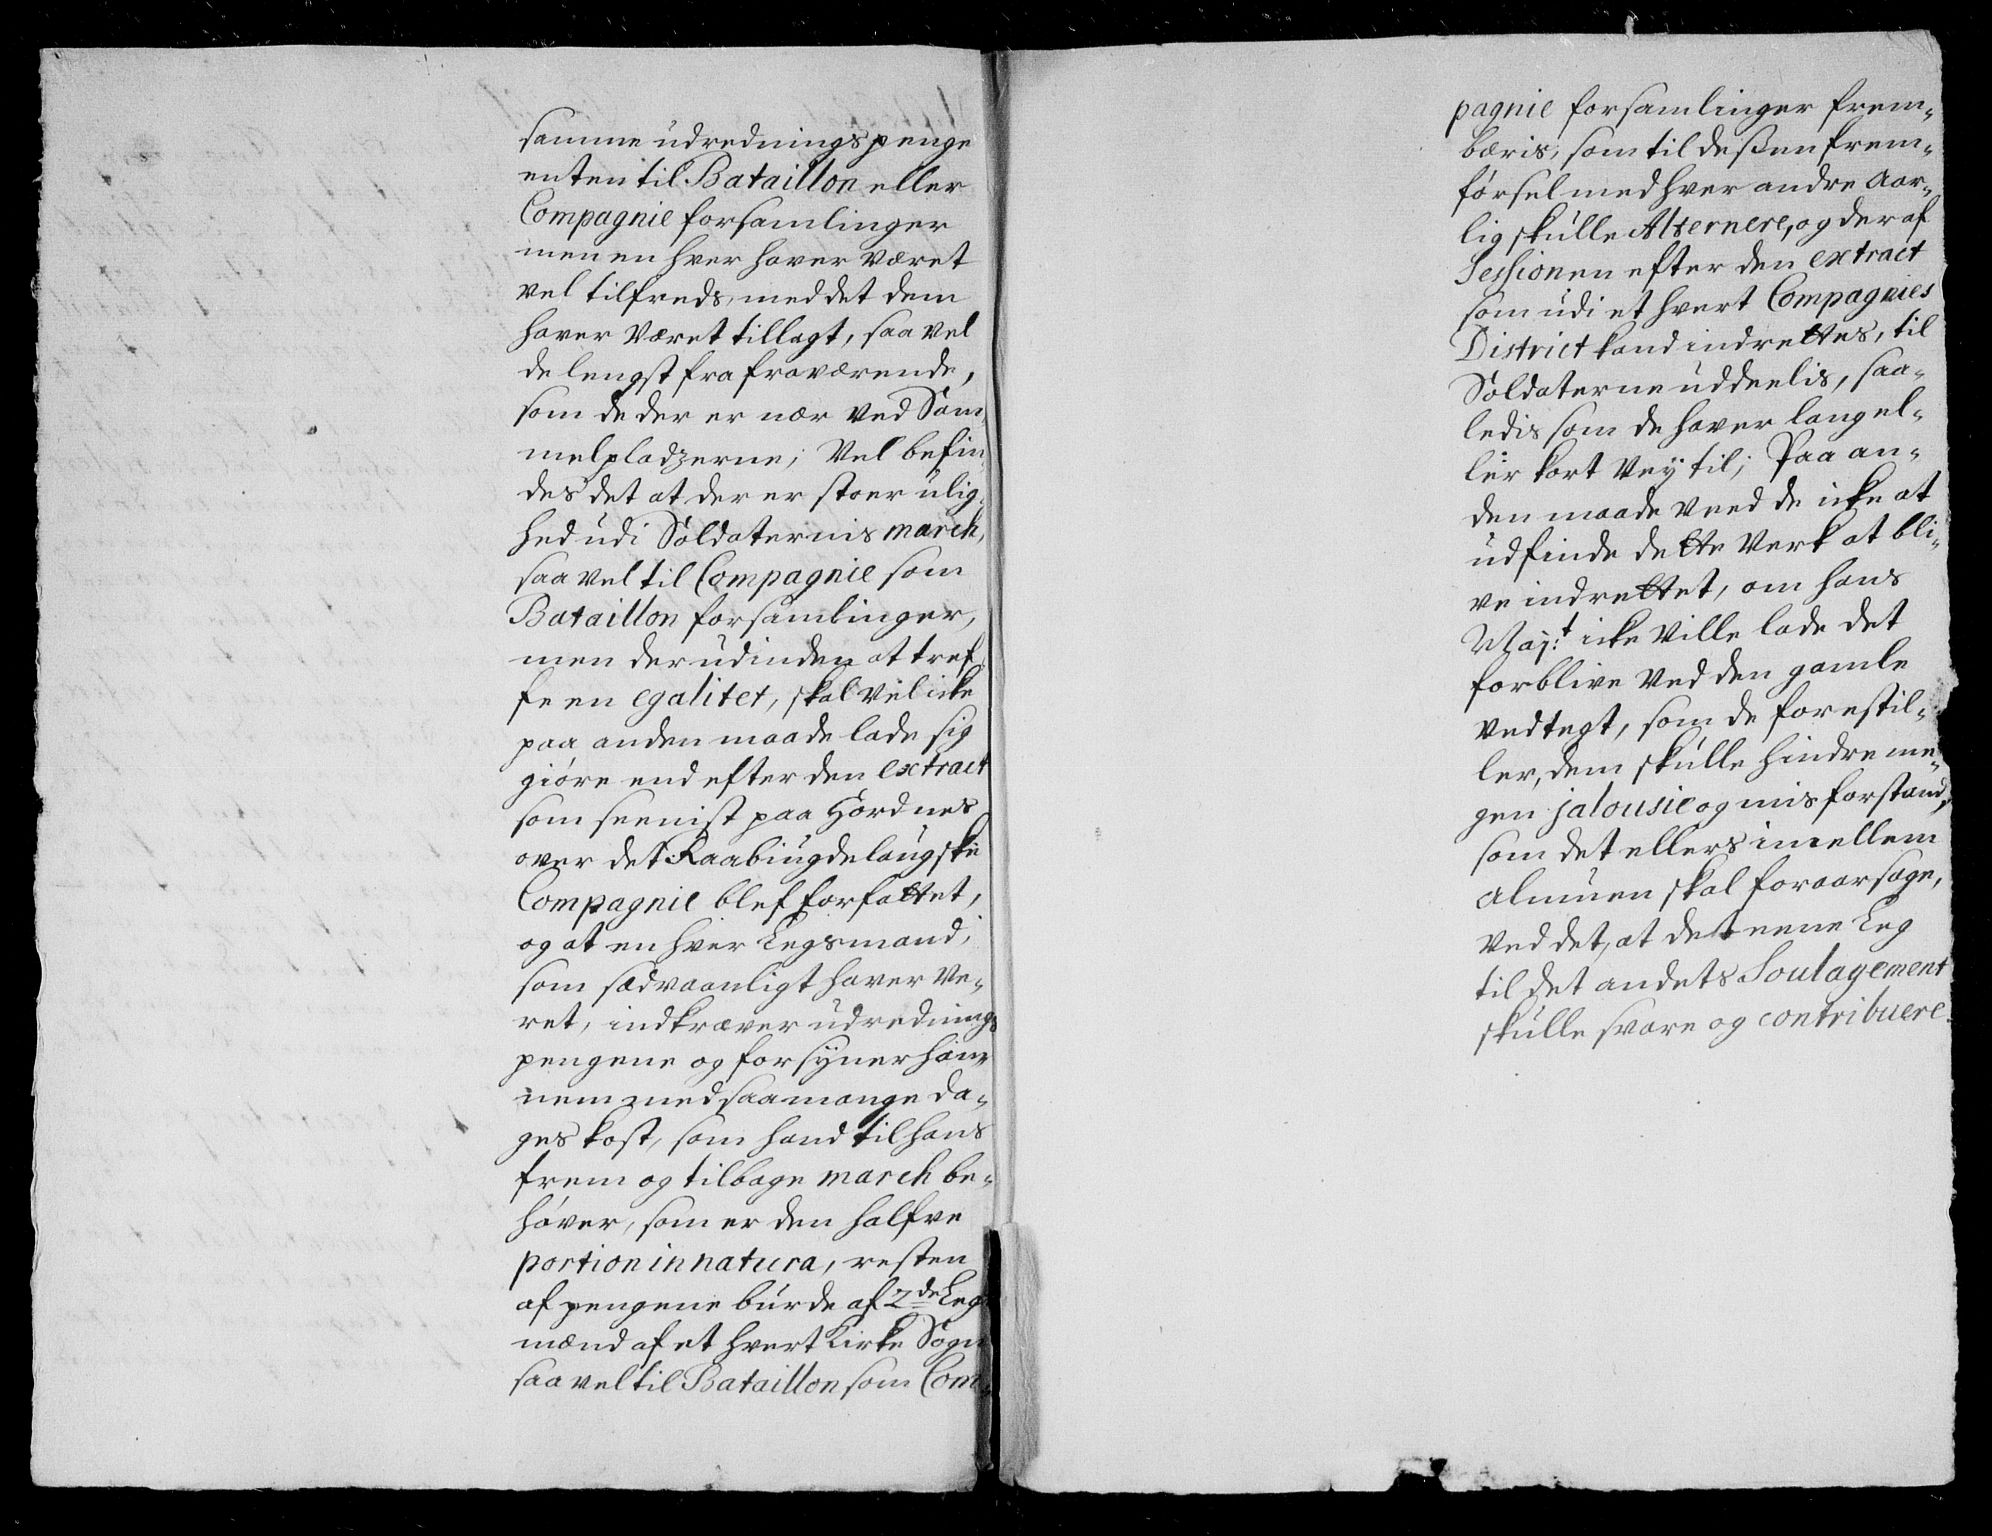 samme udrednings penge
enten til Bataillon eller
Compagnie forsamlinger
men en hver haver været
vel tilfreds, med det dem
haver været tillagt, saa vel
de lengst fra fraværende,
som de der er nær ved Sam,,
melpladzerne; Vel befin,,
des det at der er stoer ulig,,
hed udi Soldaternis march,
saa vel til Compagnie som
Bataillon forsamlinger,
men der udinden at tref,,
fe en egalitet, skal vel icke
paa anden maade lade sig
giøre end efter den extract
som seenist paa Hordnes
over det Raabÿugdelaugske
Compagnie blef forfattet,
og at en hver Legsmand,
som sædvaanligt haver ve,,
ret, indkræver udrednings
pengene og forsÿner han,,
nem med saa mange da,,
ges kost, som hand til hans
frem og tilbage march be,,
høver, som er den halfve
portion in natura, resten
af pengene burde af 2de Leg
mænd af et hvert Kirke Sogn
saa vel til Bataillon som Com,,
pagnie forsamlinger frem,,
bæris, som til deßen frem,,
førsel med hver andre Aar,,
lig skulle Alternere, og der af
Sessionen efter den extract
som udi et hvert Compagnies
District kand indrettes, til
Soldaterne uddeelis, saa,,
ledis som de haver lang el,,
ler kort Veÿ til; Paa an,,
den maade veed de icke at
udfinde dette Verk at bli,,
ve indrettet, om hans
Maj:t icke ville lade det
forblive ved den gamle
vedtegt, som de forestil,,
ler, dem skulle hindre me,,
gen jalousie og misforstand,
som det ellers imellem
almuen skal foraarsage,
ved det, at det eene Leg
til det andets Soulagement
skulle svare og contribuere.